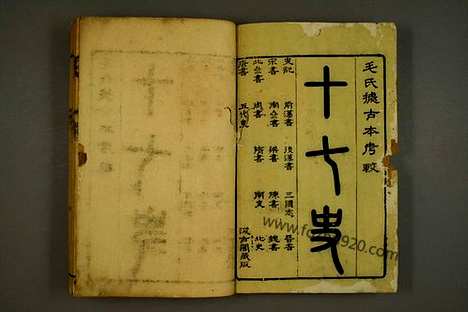 毛氏據古本考較
十七史
史記 前漢書 後漢書 三國志 晉書
宋書 南亝書 梁書 陳書 魏書
北亝書 周書 隋書 南史 北史
唐書 五代史 汲古閣藏版